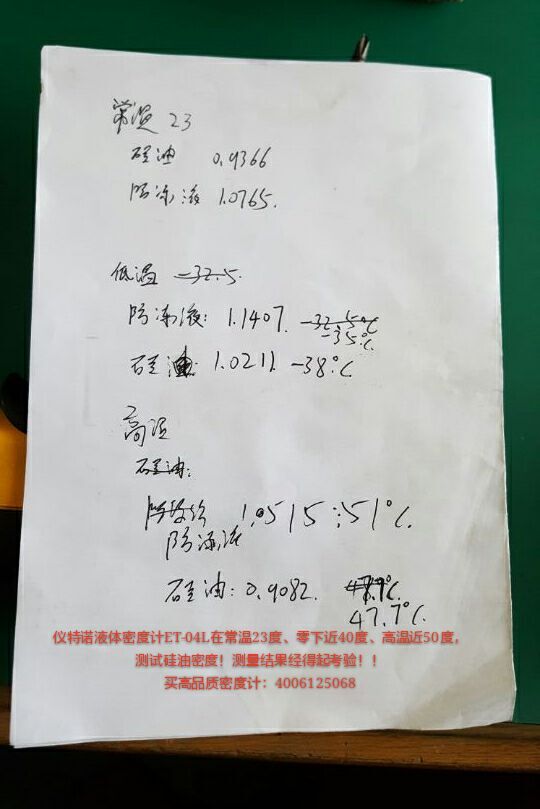 常温 23
硅油 0.9366
防冻液 1.0765.
低温 -32.5
防冻液: 1.1407. -32.5℃
-35℃.
硅油 1.0211 -38℃
高温
硅油:
1.0515:51℃.
防冻液
硅油: 0.9082. 47.7℃.
47.7℃.
仪特诺液体密度计ET-04L在常温23度、零下近40度、高温近50度，
测试硅油密度！测量结果经得起考验！！
买高品质密度计：4006125068